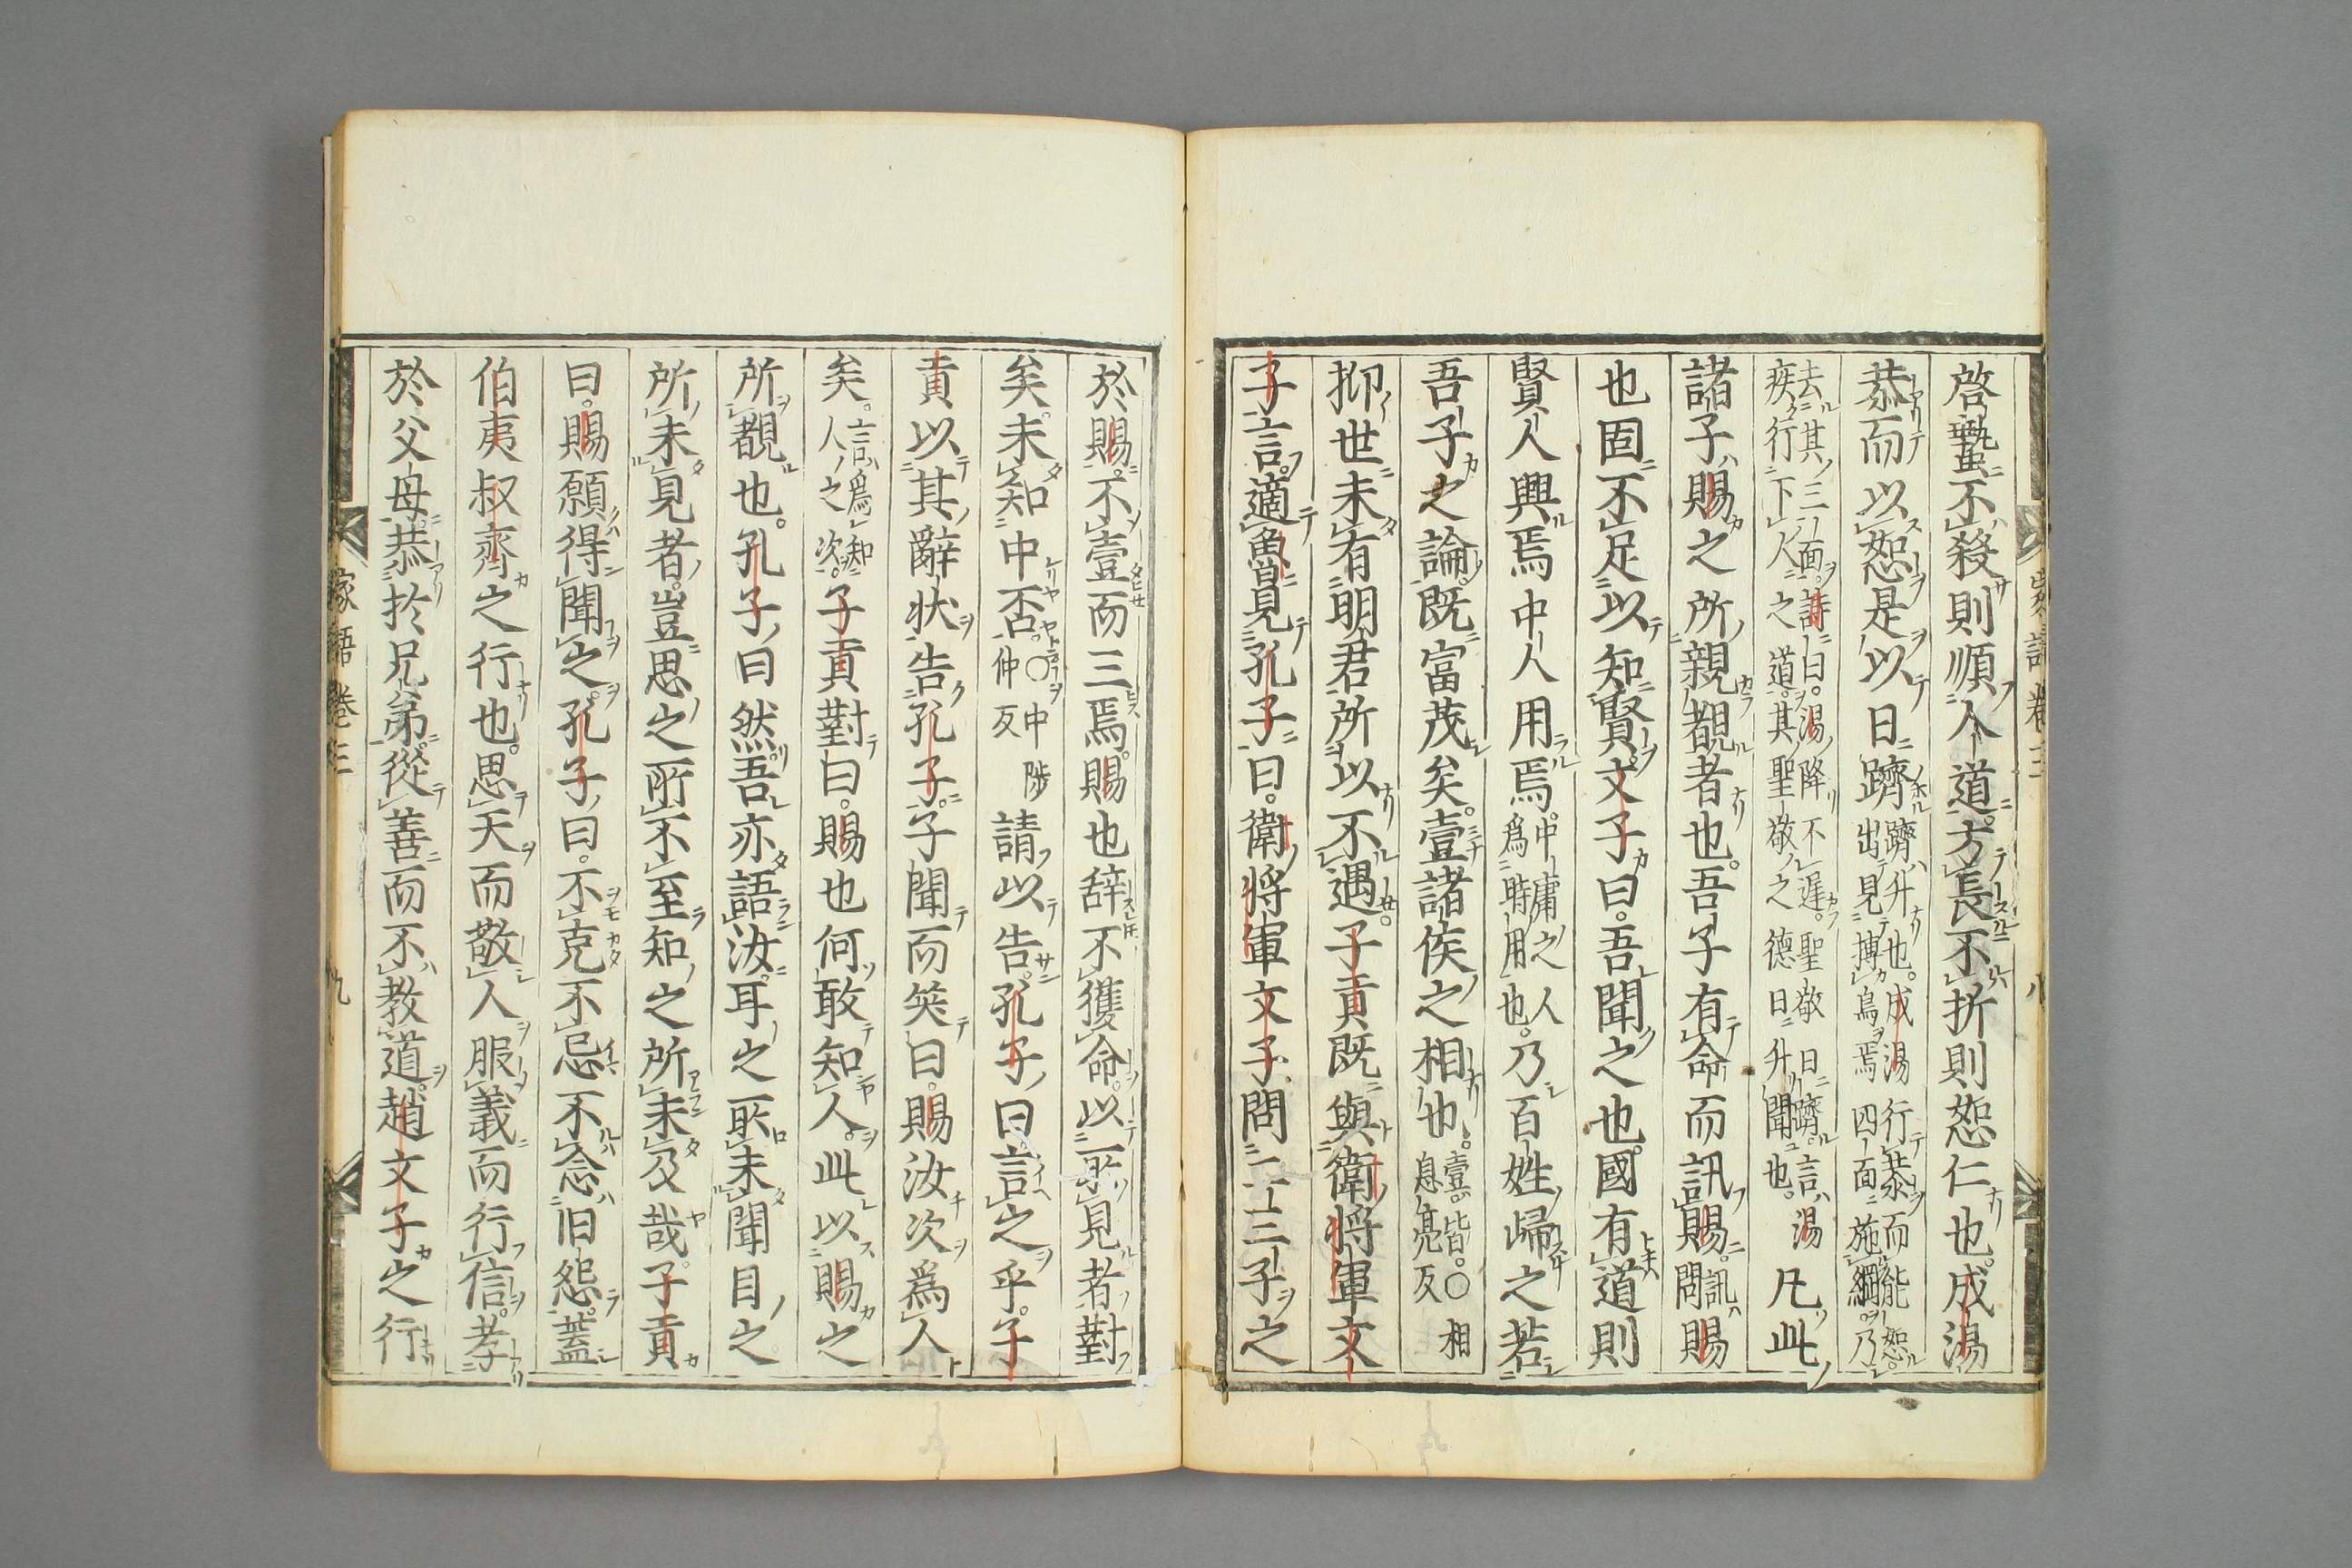 啓蟄不殺則順人道方長不折則恕仁也成湯
恭而以恕是以日躋躋升也成湯行恭而能恕出見搏鳥焉四面施網乃
去其三面詩曰湯降不遲聖敬日躋言湯疾行下人之道其聖敬之德日升聞也凡此
諸子賜之所親覩者也吾子有命而訊賜訊問賜
也固不足以知賢文子曰吾聞之也國有道則
賢人興焉中人用焉中庸之人爲時用也乃百姓歸之若
吾子之論既富茂矣壹諸侯之相也壹皆〇相息亮反
抑世未有明君所以不遇子貢既與衛將軍文
子言適魯見孔子曰衛將軍文子問二三子之
於賜不壹而三焉賜也辞不獲命以所見者對
矣未知中否〇中陟仲反請以告孔子曰言之乎子
貢以其辭狀告孔子子聞而笑曰賜汝次爲人
矣言爲知人之次子貢對曰賜也何敢知人此以賜之
所覩也孔子曰然吾亦語汝耳之所未聞目之
所未見者豈思之所不至知之所未及哉子貢
曰賜願得聞之孔子曰不克不忌不念旧怨蓋
伯夷叔齊之行也思天而敬人服義而行信孝
於父母恭於兄弟從善而不教道趙文子之行
家語卷三 九